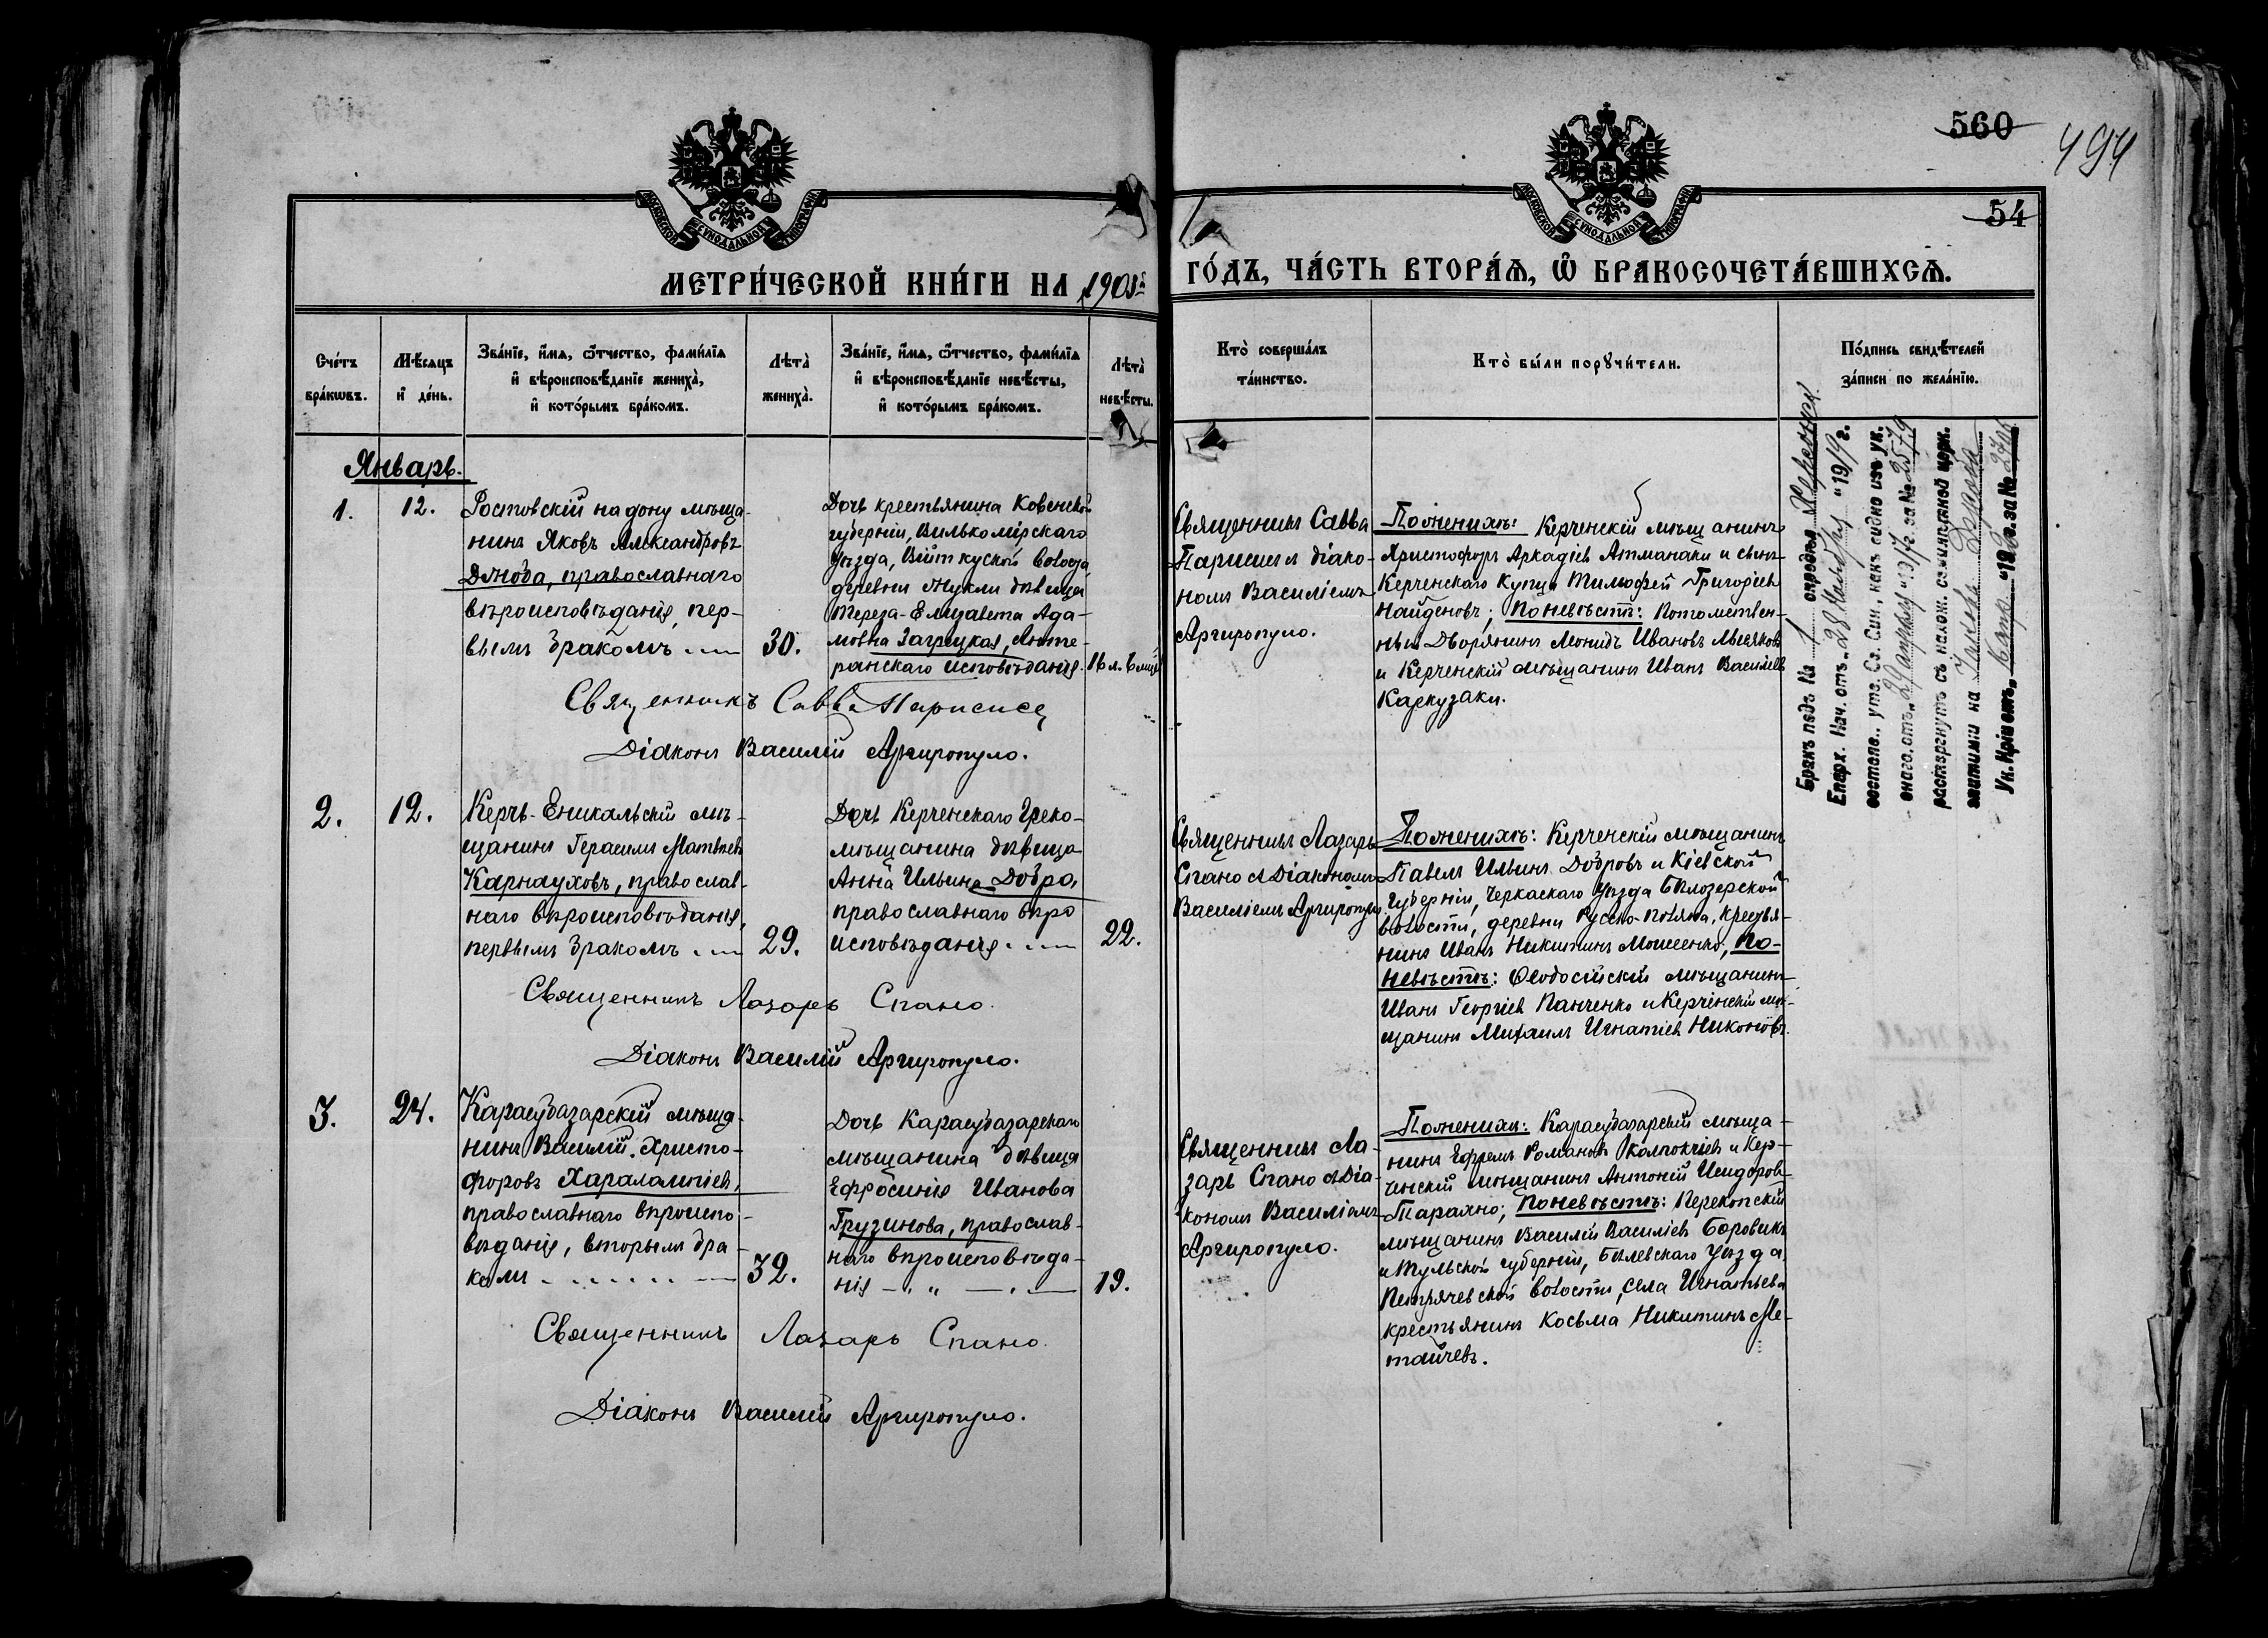 560
494
54
МОСКОВСКОЙ СѴНОДАЛЬНОЙ ТИПОГРАФІИ
МОСКОВСКОЙ СѴНОДАЛЬНОЙ ТИПОГРАФІИ
МЕТРИ́ЧЕСКОЙ КНИ́ГИ НА 1903й ГО́ДЪ, ЧА́СТЬ ВТОРА́Ѧ, Ѿ БРАКОСОЧЕТА́ВШИХСѦ.
Сче́тъ бра́кѡвъ.
Мѣ́сѧцъ и҆ де́нь.
Зва́нїе, и҆́мѧ, ѻ҆́тчество, фами́лїѧ
и҆ вѣроисповѣ́данїе жениха̀,
и҆ кото́рымъ бра́комъ.
Лѣта̀ жениха̀.
Зва́нїе, и҆́мѧ, ѻ҆́тчество, фами́лїѧ
и҆ вѣроисповѣ́данїе невѣ́сты,
и҆ кото́рымъ бра́комъ.
Лѣта̀ невѣ́сты.
Кто̀ соверша́лъ
та́инство.
Кто̀ бы́ли порꙋчи́тели.
По́дпись свидѣ́телей
за́писи по жела́нїю.
Январь.
1.
12.
Ростовскій на дону мѣща-
нинъ Яковъ Александровъ
Дзюба, православнаго
вѣроисповѣданія, пер-
вымъ бракомъ
30.
Дочь крестьянина Ковенской
губерніи, Вилькомірскаго
уѣзда, Виткуской волости
деревни Жукли дѣвица
Тереза-Елизавета Ада-
мовна Загрецкая, Люте-
ранскаго исповѣданія.
16 л. 6 мѣс.
Священникъ Савва
Парисисъ и діако-
номъ Василіемъ
Аргиропуло.
По женихѣ: Керченскій мѣщанинъ
Христофоръ Аркадіевъ Атманаки и сынъ
Керченскаго купца Тимофей Григоріевъ
Найденовъ; по невѣстѣ: потомствен-
ный Дворянинъ Леонидъ Ивановъ Мысяковъ
и Керченскій мѣщанинъ Иванъ Васильевъ
Каркузаки.
Бракъ подъ № 1 опредѣл Херсонск.
Епарх. Нач. отъ „28 Ноября" 1919 г.
состояв., утв. Св. Син., какъ видно изъ ук.
онаго, отъ „29 апрѣля" 917 г. за № 3579
расторгнутъ съ налож. семилѣтней церк.
эпитиміи на Якова Дзюба
Священникъ Савва Парисисъ
Діаконъ Василій Аргиропуло.
2.
12.
Керчь-Еникальскій мѣ-
щанинъ Герасимъ Матвѣевъ
Карнауховъ, православ-
наго вѣроисповѣданія,
первымъ бракомъ
29.
Дочь Керченскаго Греко-
мѣщанина дѣвица
Анна Ильина Добра,
православнаго вѣро
исповѣданія.
22.
Священникъ Лазарь
Спано съ Діакономъ
Василіемъ Аргиропуло
По женихѣ: Керченскій мѣщанинъ
Павелъ Ильинъ Добровъ и Кіевской
губерніи, Черкаскаго уѣзда Бѣлозерской
волости, деревни Русско-Поляна, крестья-
нинъ Иванъ Никитинъ Моисеенко; по-
невѣстѣ: Ѳеодосійскій мѣщанинъ
Иванъ Георгіевъ Панченко и Керченскій мѣ-
щанинъ Михаилъ Игнатіевъ Никоновъ.
Священникъ Лазарь Спано.
Діаконъ Василій Аргиропуло.
3.
24.
Карасубазарскій мѣща-
нинъ Василій Христо-
форовъ Харалампіевъ,
православнаго вѣроиспо-
вѣданія, вторымъ бра-
комъ
32.
Дочь Карасубазарскаго
мѣщанина дѣвица
Ефросинія Иванова
Грузинова, православ-
наго вѣроисповѣда-
нія
19.
Священникъ Ла-
зарь Спано съ Діа-
кономъ Василіемъ
Аргиропуло.
По женихѣ: Карасубазарскій мѣща-
нинъ Ефремъ Романовъ Калпакчіевъ и Кер-
ченскій мѣщанинъ Антоній Исидоровъ
Тараяно; по невѣстѣ: Перекопскій
мѣщанинъ Василій Василіевъ Боровикъ
и Тульской губерніи, Бѣлевскаго уѣзда,
волости, села Игнатьева
крестьянинъ Косьма Никитинъ Ме-
тайчевъ.
Священникъ Лазарь Спано.
Діаконъ Василій Аргиропуло.